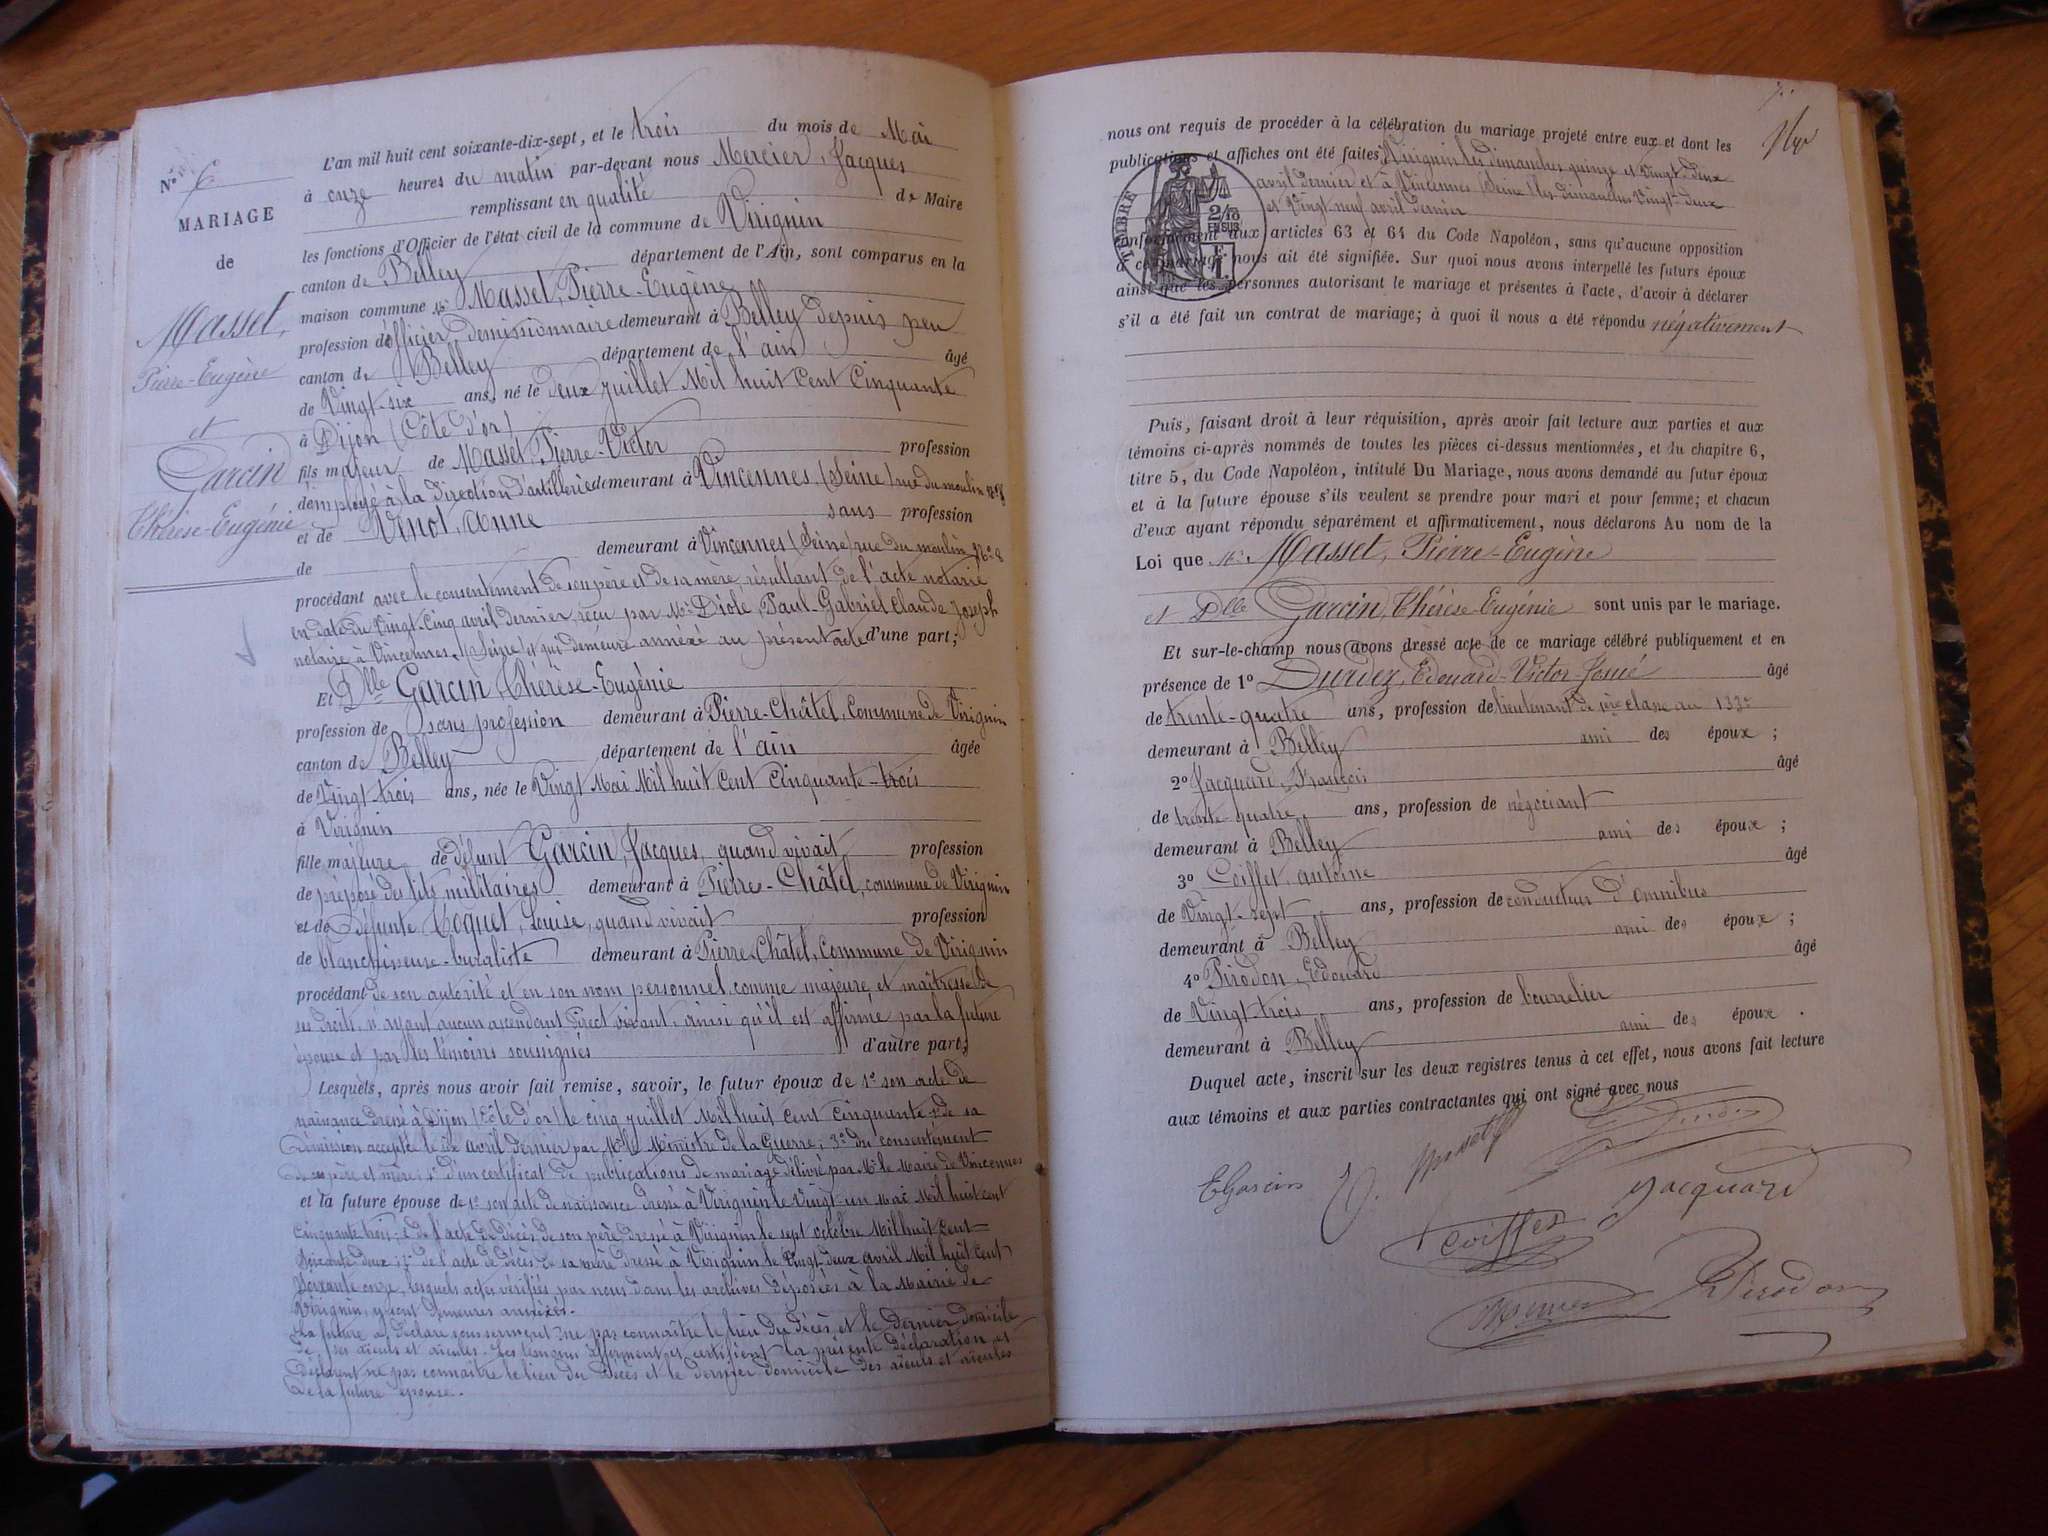 N° 6
MARIAGE
de
Masset,
Pierre-Eugène
et
Garcin
Thérèse-Eugénie
L'an mil huit cent soixante-dix-sept, et le trois du mois de Mai
à onze heures du matin par-devant nous Mercier, Jacques
remplissant en qualité de Maire
les fonctions d'Officier de l'état civil de la commune de Virignin
canton de Belley département de l'Ain, sont comparus en la
maison commune Mr Masset, Pierre-Eugène
profession d'officier démissionnaire demeurant à Belley depuis peu
canton de Belley département de l'ain âgé
de Vingt-six ans, né le deux juillet Mil huit Cent Cinquante
à Dijon (Côte d'or)
fils majeur de Masset, Pierre-Victor profession
d'employé à la direction d'artillerie demeurant à Vincennes, (Seine) rue du moulin N° 8
et de Vinot, Anne sans profession
de demeurant à Vincennes (Seine) rue du moulin N° 8
procédant avec le consentement de son père et de sa mère, résultant de l'acte notarié
en date du Vingt-Cinq avril dernier, reçu par Me Diolé, Paul-Gabriel Claude Joseph
notaire à Vincennes, (Seine) et qui demeure annexé au présent acte d'une part;
Et Dlle Garcin, Thérèse-Eugénie
profession de sans profession demeurant à Pierre-Châtel, Commune de Virignin
canton de Belley département de l'ain âgée
de Vingt trois ans, née le Vingt Mai Mil huit Cent Cinquante-trois
à Virignin
fille majeure de défunt Garcin, Jacques, quand vivait profession
de préposé des lits militaires demeurant à Pierre-Châtel, commune de Virignin
et de défunte Coquet, Louise, quand vivait profession
de blanchisseuse-buraliste demeurant à Pierre-Châtel, Commune de Virignin
procédant de son autorité et en son nom personnel, comme majeure et maîtresse de
ses droits, n'ayant aucun ascendant direct vivant, ainsi qu'il est affirmé par la future
épouse et par les témoins soussignés d'autre part;
Lesquels, après nous avoir fait remise, savoir, le futur époux de 1° son acte de
naissance dressé à Dijon (Côte d'or) le cinq juillet Mil huit cent cinquante 2° de sa
démission acceptée le dix avril dernier par Mr le Ministre de la Guerre; 3° du consentement
de ses père et mère; 4° d'un certificat de publications de mariage délivré par Mr le Maire de Vincennes
et la future épouse de 1° son acte de naissance dressé à Virignin le Vingt-un Mai Mil huit cent
cinquante trois; 2° de l'acte de décès de son père dressé à Virignin le sept octobre Mil huit Cent
Soixante deux; 3° de l'acte de décès de sa mère dressé à Virignin le Vingt-deux avril Mil huit cent
Soixante onze, lesquels actes vérifiés par nous dans les archives déposées à la Mairie de
Virignin, y sont demeurés annexés.
La future a déclaré sous serment ne pas connaître le lieu du décès et le dernier domicile
de ses aïeuls et aïeules. Les témoins affirment et certifient la présente déclaration et
déclarent ne pas connaître le lieu du décès et le dernier domicile des aïeuls et aïeules
de la future épouse.
nous ont requis de procéder à la célébration du mariage projeté entre eux et dont les
publications et affiches ont été faites à Virignin les dimanches quinze et Vingt-deux
avril dernier et à Vincennes (Seine) les dimanches Vingt-deux
et Vingt neuf avril dernier
TIMBRE
2/10
EN SUS
conformément aux articles 63 et 64 du Code Napoléon, sans qu'aucune opposition
à ce mariage nous ait été signifiée. Sur quoi nous avons interpellé les futurs époux
ainsi que les personnes autorisant le mariage et présentes à l'acte, d'avoir à déclarer
s'il a été fait un contrat de mariage; à quoi il nous a été répondu négativement
Puis, faisant droit à leur réquisition, après avoir fait lecture aux parties et aux
témoins ci-après nommés de toutes les pièces ci-dessus mentionnées, et du chapitre 6,
titre 5, du Code Napoléon, intitulé Du Mariage, nous avons demandé au futur époux
et à la future épouse s'ils veulent se prendre pour mari et pour femme; et chacun
d'eux ayant répondu séparément et affirmativement, nous déclarons Au nom de la
Loi que Mr Masset, Pierre-Eugène
et Dlle Garcin, Thérèse-Eugénie sont unis par le mariage.
Et sur-le-champ nous avons dressé acte de ce mariage célébré publiquement et en
présence de 1° Durdez, Edouard-Victor-Josué âgé
de trente-quatre ans, profession de lieutenant de 1ère classe au 133e
demeurant à Belley ami des époux;
2° Jacquard, François âgé
de trente quatre ans, profession de négociant
demeurant à Belley ami des époux;
3° Coiffet, antoine âgé
de Vingt-sept ans, profession de conducteur d'omnibus
demeurant à Belley ami des époux;
4° Pirodon, Edouard âgé
de Vingt-trois ans, profession de bourrelier
demeurant à Belley ami des époux.
Duquel acte, inscrit sur les deux registres tenus à cet effet, nous avons fait lecture
aux témoins et aux parties contractantes qui ont signé avec nous
E Garcin
Jacquard
Coiffet
Mercier
Pirodon